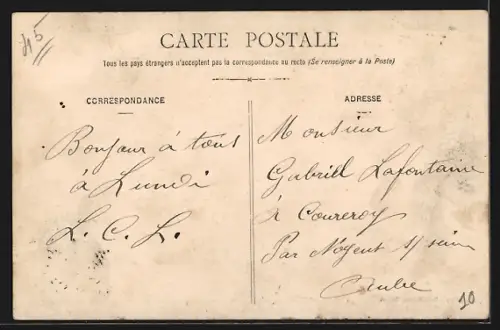 45
CARTE POSTALE
Tous les pays étrangers n'acceptent pas la correspondance au recto (Se renseigner à la Poste)
CORRESPONDANCE
Bonjour à tous
à Lundi
L. C. L.
ADRESSE
Monsieur
Gabriel Lafontaine
à Courceroy
Par Nogent s/ seine
Aube
10